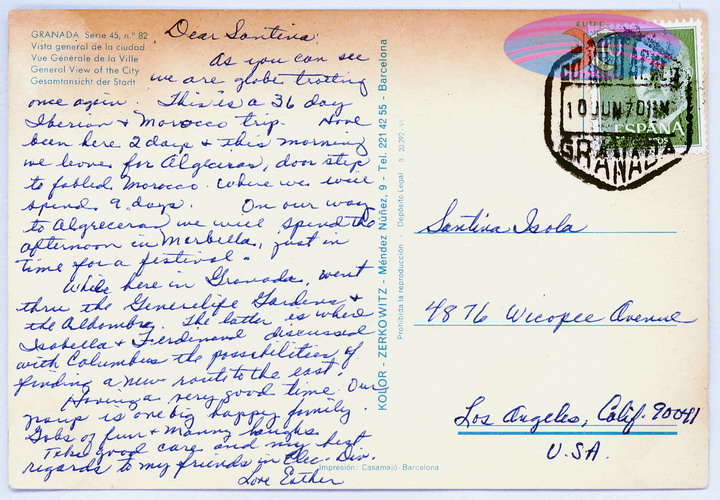 GRANADA. Serie 45, n.° 82
Vista general de la ciudad
Vue Générale de la Ville
General View of the City
Gesamtansicht der Stadt
Dear Santina
As you can see
we are globe trotting
once again. This is a 36 day
Iberian & Morocco trip. Have
been here 2 days & this morning
we leave for Algeceras, door step
to fabled Morocco. Where we will
spend 9 days. On our way
to Algreceras we will spend the
afternoon in Marbella, just in
time for a festival.
While here in Granada, went
thru the Generelife Gardens &
the Aldombra. The latter is where
Isabella & Ferdinand discussed
with Columbus the possibilities of
finding a new route to the east.
Having a very good time. Our
group is one big happy family.
Gobs of fun & manny laughs.
Take good care and my best
regards to my friends in Elec. Div.
Love Esther
KOLOR - ZERKOWITZ - Méndez Núñez, 9 - Tel. 221 42 55 - Barcelona
Prohibida la reproducción Depósito Legal B. 20.292-VI
Impresión: Casamajó-Barcelona
10 JUN 70
ESPAÑA
GRANADA
Santina Isola
4876 Wicopee Avenue
Los Angeles, Calif. 90041
U.S.A.